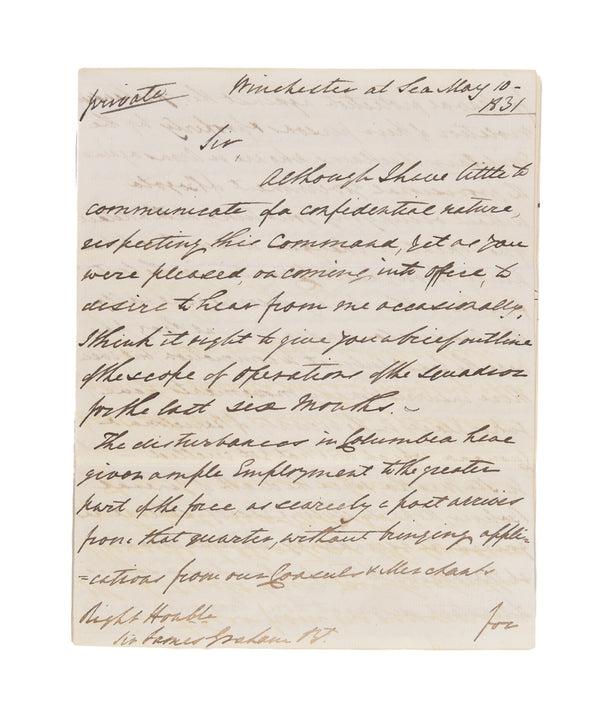 private
Winchester at Sea May 10-
1831
Sir
Although I have little to
communicate of a confidential nature,
respecting this Command, yet as you
were pleased, on coming into office, to
desire to hear from me occasionally,
I think it right to give you a brief outline
of the scope of operations of the Squadron
for the last six Months. -
The disturbances in Columbia have
given ample Employment to the greater
part of the force, as scarcely a post arrives
from that quarter, without bringing appli-
=cations from our Consuls & Merchants
Right Honble
Sir James Graham Bt.
for